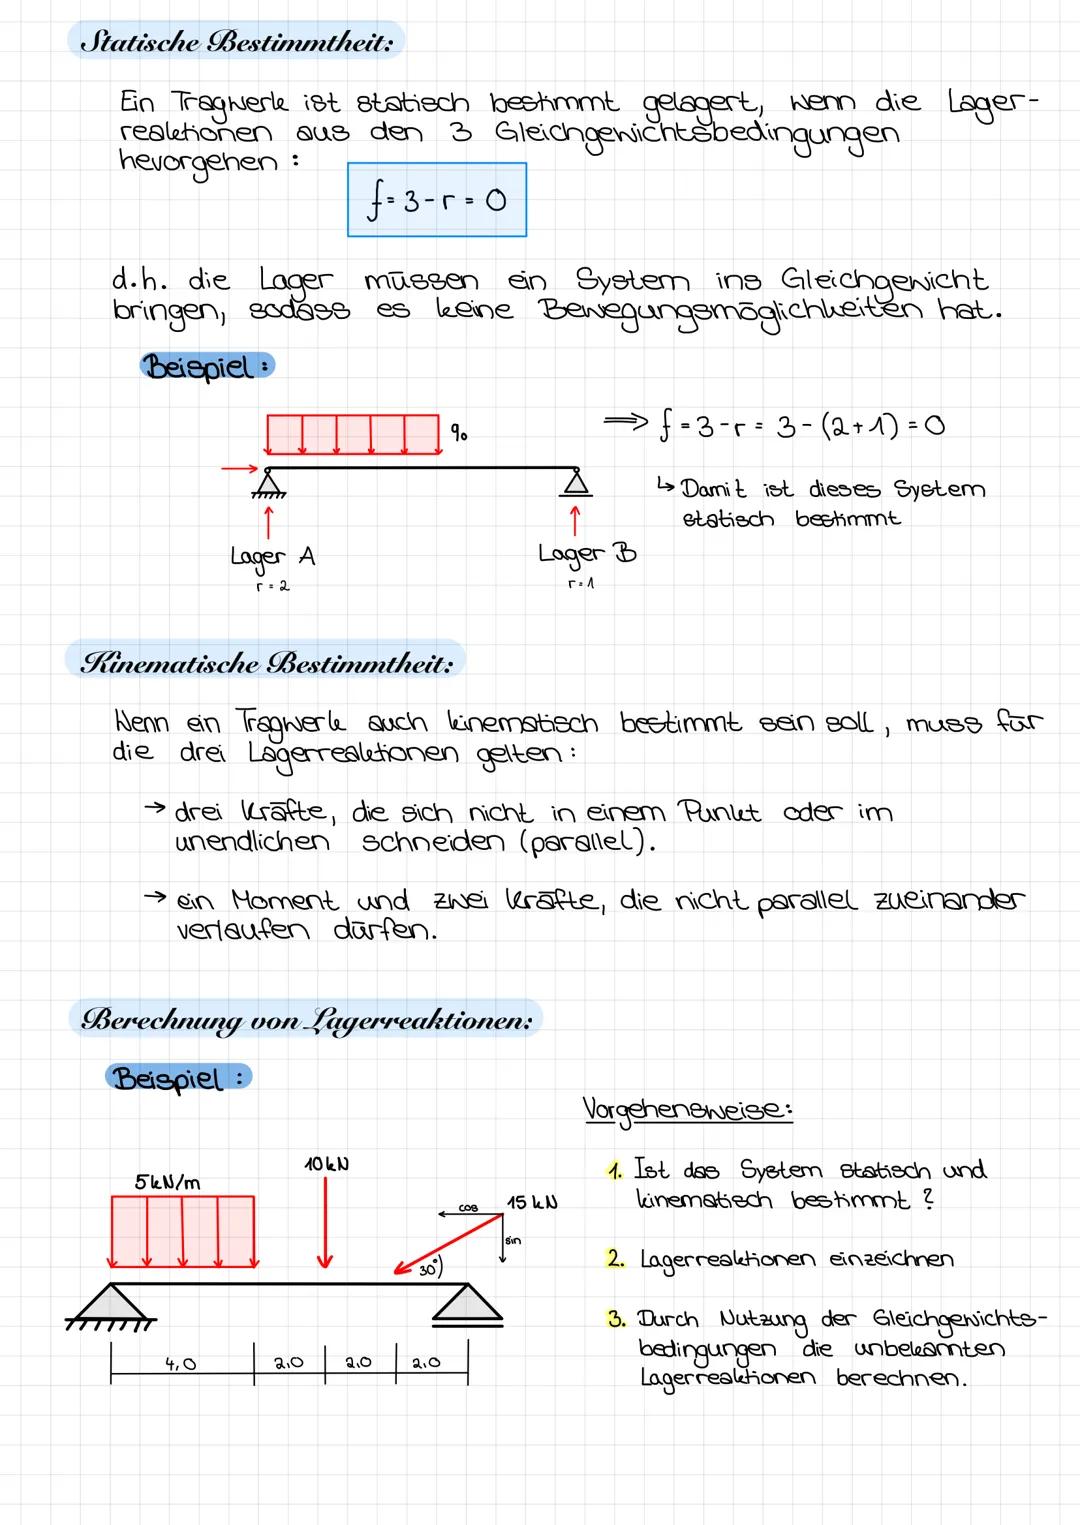 Statische Bestimmtheit:
Ein Tragwerk ist statisch bestimmt gelagert, wenn die Lager-
reaktionen aus den 3 Gleichgewichtsbedingungen
hevorgehen :
f = 3 - r = 0
d.h. die Lager müssen ein System ins Gleichgewicht
bringen, sodass es keine Bewegungsmöglichkeiten hat.
Beispiel :
q₀
⟹ f = 3 - r = 3 - (2+1) = 0
↳ Damit ist dieses System
statisch bestimmt
Lager A
r = 2
Lager B
r = 1
Kinematische Bestimmtheit:
Wenn ein Tragwerk auch kinematisch bestimmt sein soll, muss für
die drei Lagerreaktionen gelten :
→ drei Kräfte, die sich nicht in einem Punkt oder im
unendlichen schneiden (parallel).
→ ein Moment und zwei Kräfte, die nicht parallel zueinander
verlaufen dürfen.
Berechnung von Lagerreaktionen:
Beispiel :
5 kN/m
10 kN
15 kN
cos
sin
30°
4,0
2,0
2,0
2,0
Vorgehensweise:
1. Ist das System statisch und
kinematisch bestimmt ?
2. Lagerreaktionen einzeichnen
3. Durch Nutzung der Gleichgewichts-
bedingungen die unbekannten
Lagerreaktionen berechnen.